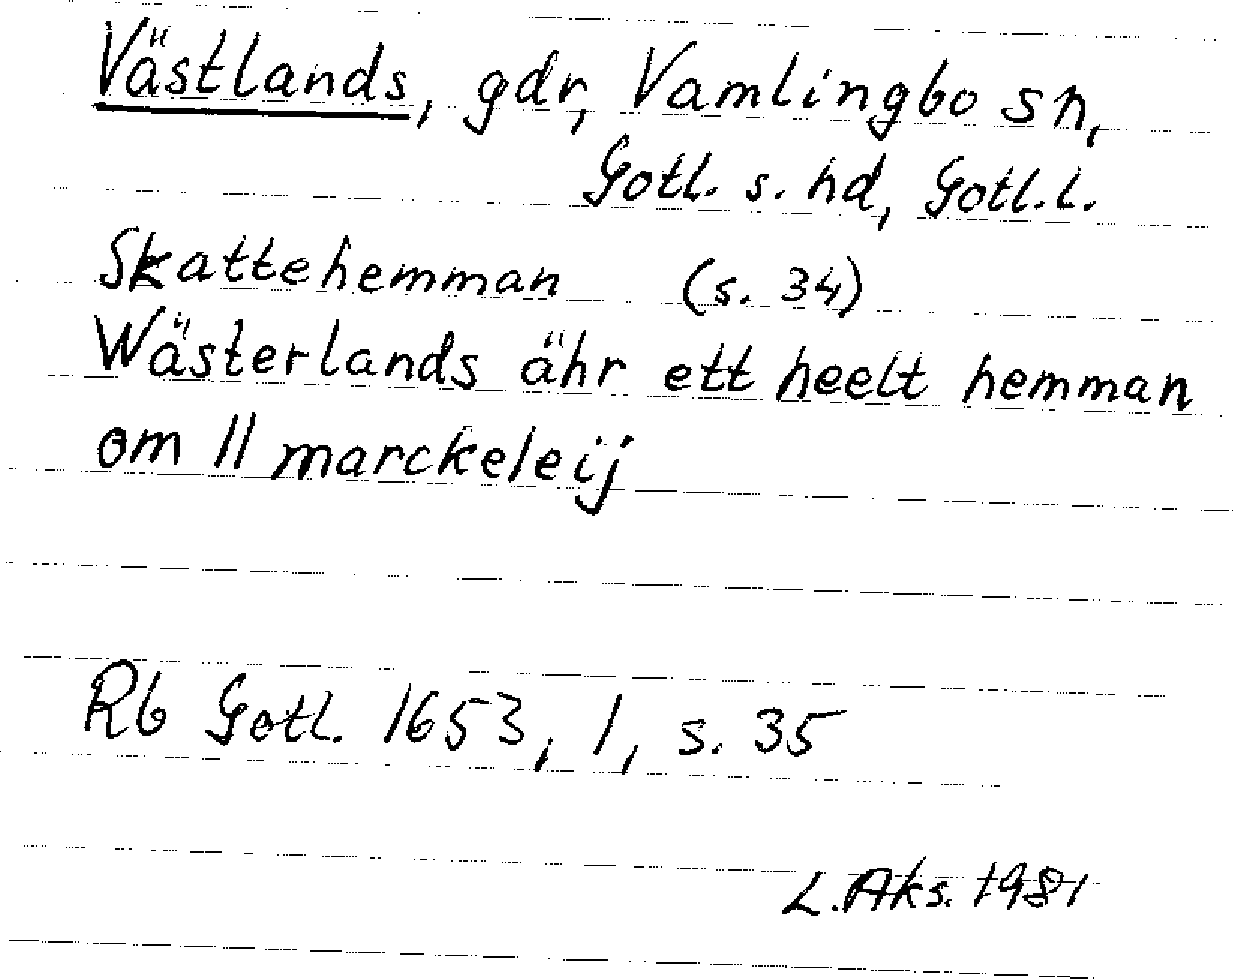 Västlands, gdr, Vamlingbo sn,
Gotl. s. hd, Gotl. l.
Skattehemman (s. 34)
Wästerlands ähr ett heelt hemman
om 11 marckeleij
Rb Gotl. 1653, 1, s. 35
L. Aks. 1981